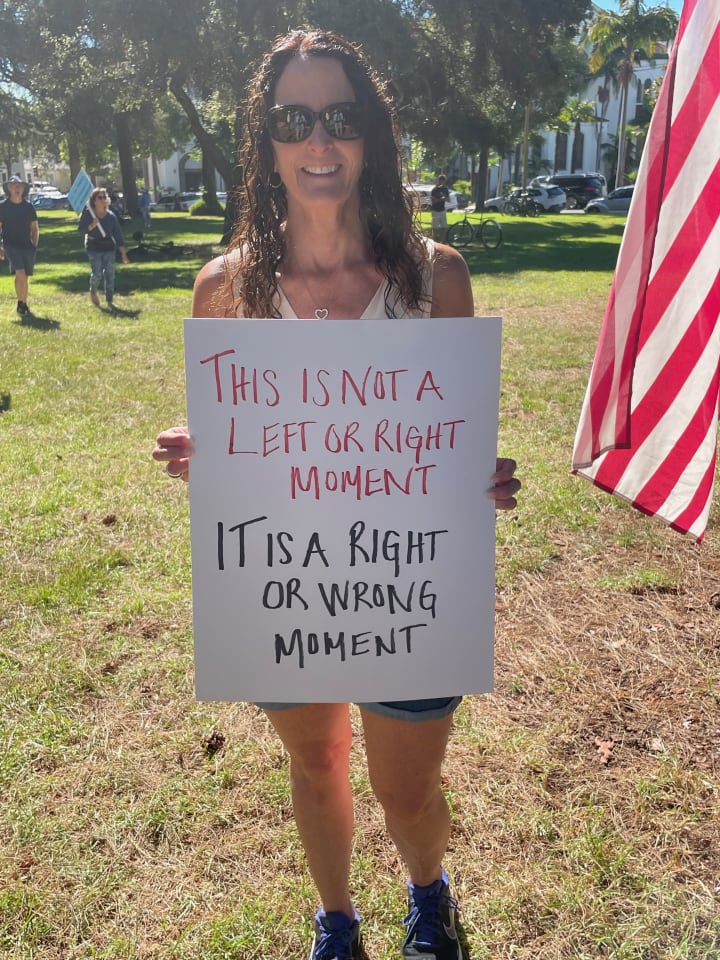 THIS IS NOT A
LEFT OR RIGHT
MOMENT
IT IS A RIGHT
OR WRONG
MOMENT